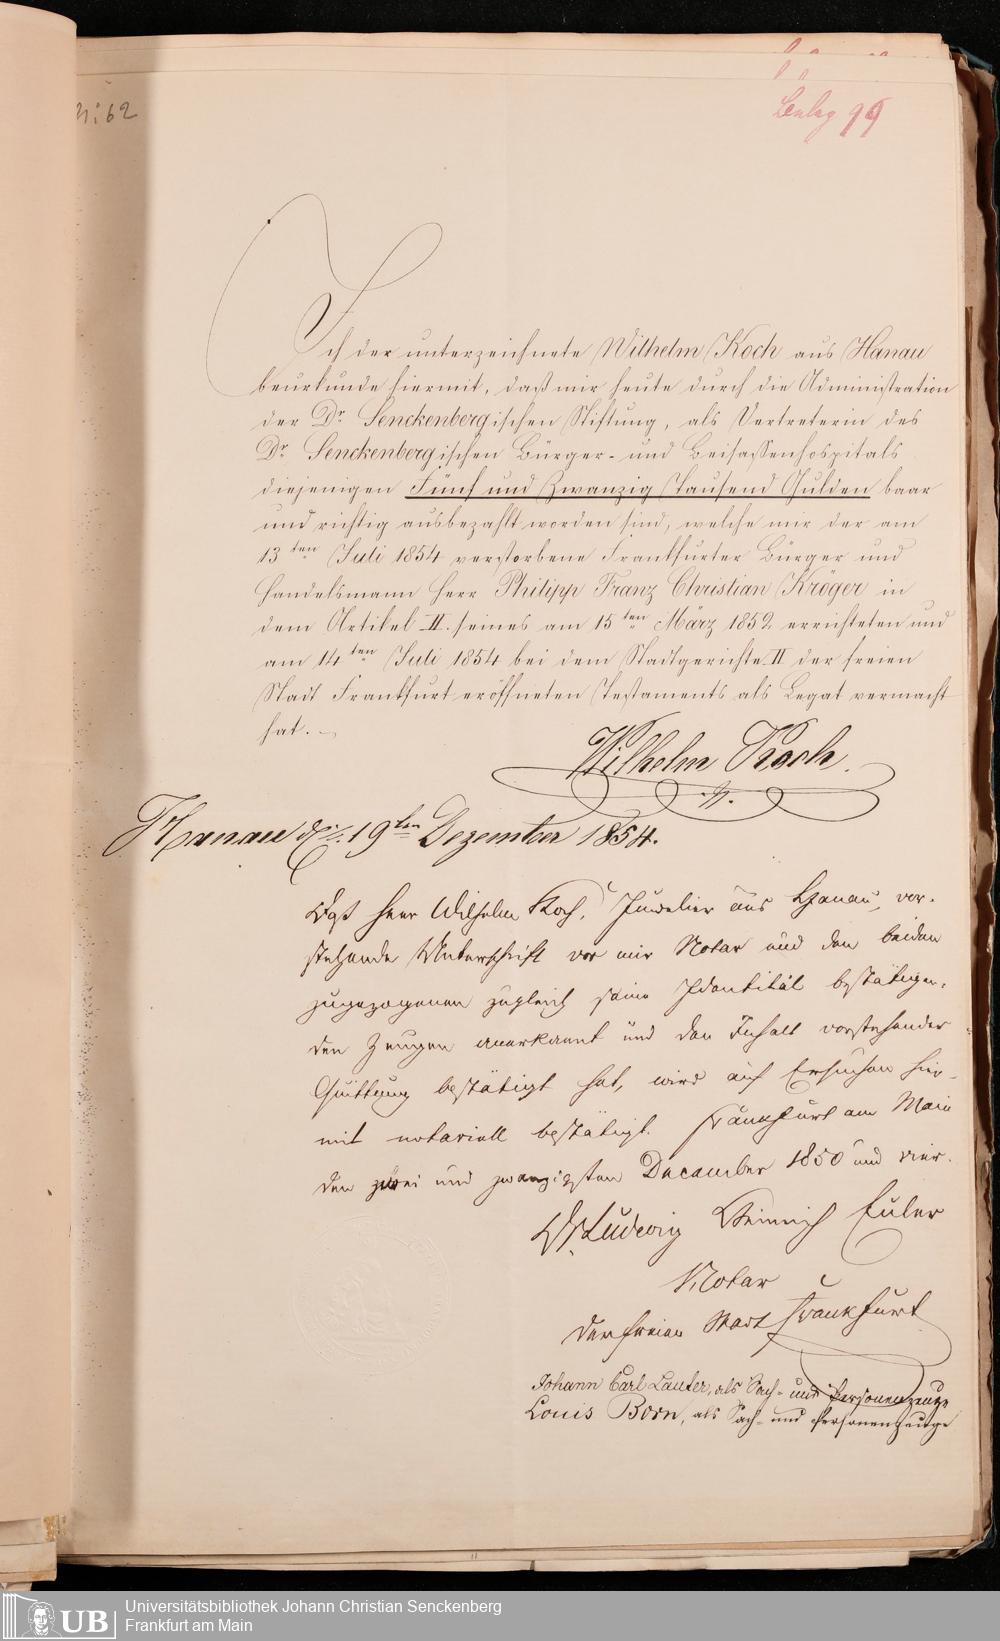 N: 62
Beleg 99
Ich der unterzeichnete Wilhelm Koch aus Hanau
beurkunde hiermit, daß mir heute durch die Administration
der Dr. Senckenbergischen Stiftung, als Vertreterin des
Dr. Senckenbergischen Bürger- und Beisassenhospitals
diejenigen Fünf und Zwanzig Tausend Gulden baar
und richtig ausbezahlt worden sind, welche mir der am
13ten Juli 1854 verstorbene Frankfurter Bürger und
Handelsmann Herr Philipp Franz Christian Kröger in
dem Artikel II. seines am 15ten März 1852. errichteten und
am 14ten Juli 1854 bei dem Stadtgerichte II der freien
Stadt Frankfurt eröffneten Testaments als Legat vermacht
hat.
Wilhelm Koch.
Hanau den 19ten Dezember 1854.
Daß Herr Wilhelm Koch, Juwelier aus Hanau, vor-
stehende Unterschrift vor mir Notar und den beiden
zugezogenen zugleich seine Identität bestätigen-
den Zeugen anerkannt und den Inhalt vorstehender
Quittung bestätigt hat, wird auf Ersuchen hier-
mit notariell bestätigt. Frankfurt am Main
den zwei und zwanzigsten December 1850 und vier.
Dr. Ludwig Heinrich Euler
Notar
der freien Stadt Frankfurt
Johann Carl Lauter, als Sach- und Personenzeuge
Louis Born, als Sach- und Personenzeuge
UB
Universitätsbibliothek Johann Christian Senckenberg
Frankfurt am Main